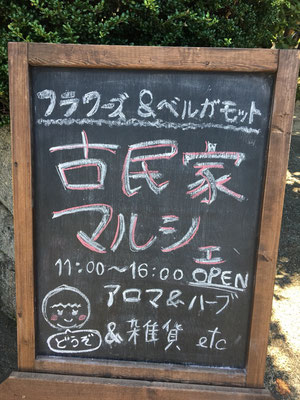 フラワーズ&ベルガモット
古民家
マルシェ
11:00〜16:00 OPEN
アロマ&ハーブ
&雑貨 etc
どうぞ